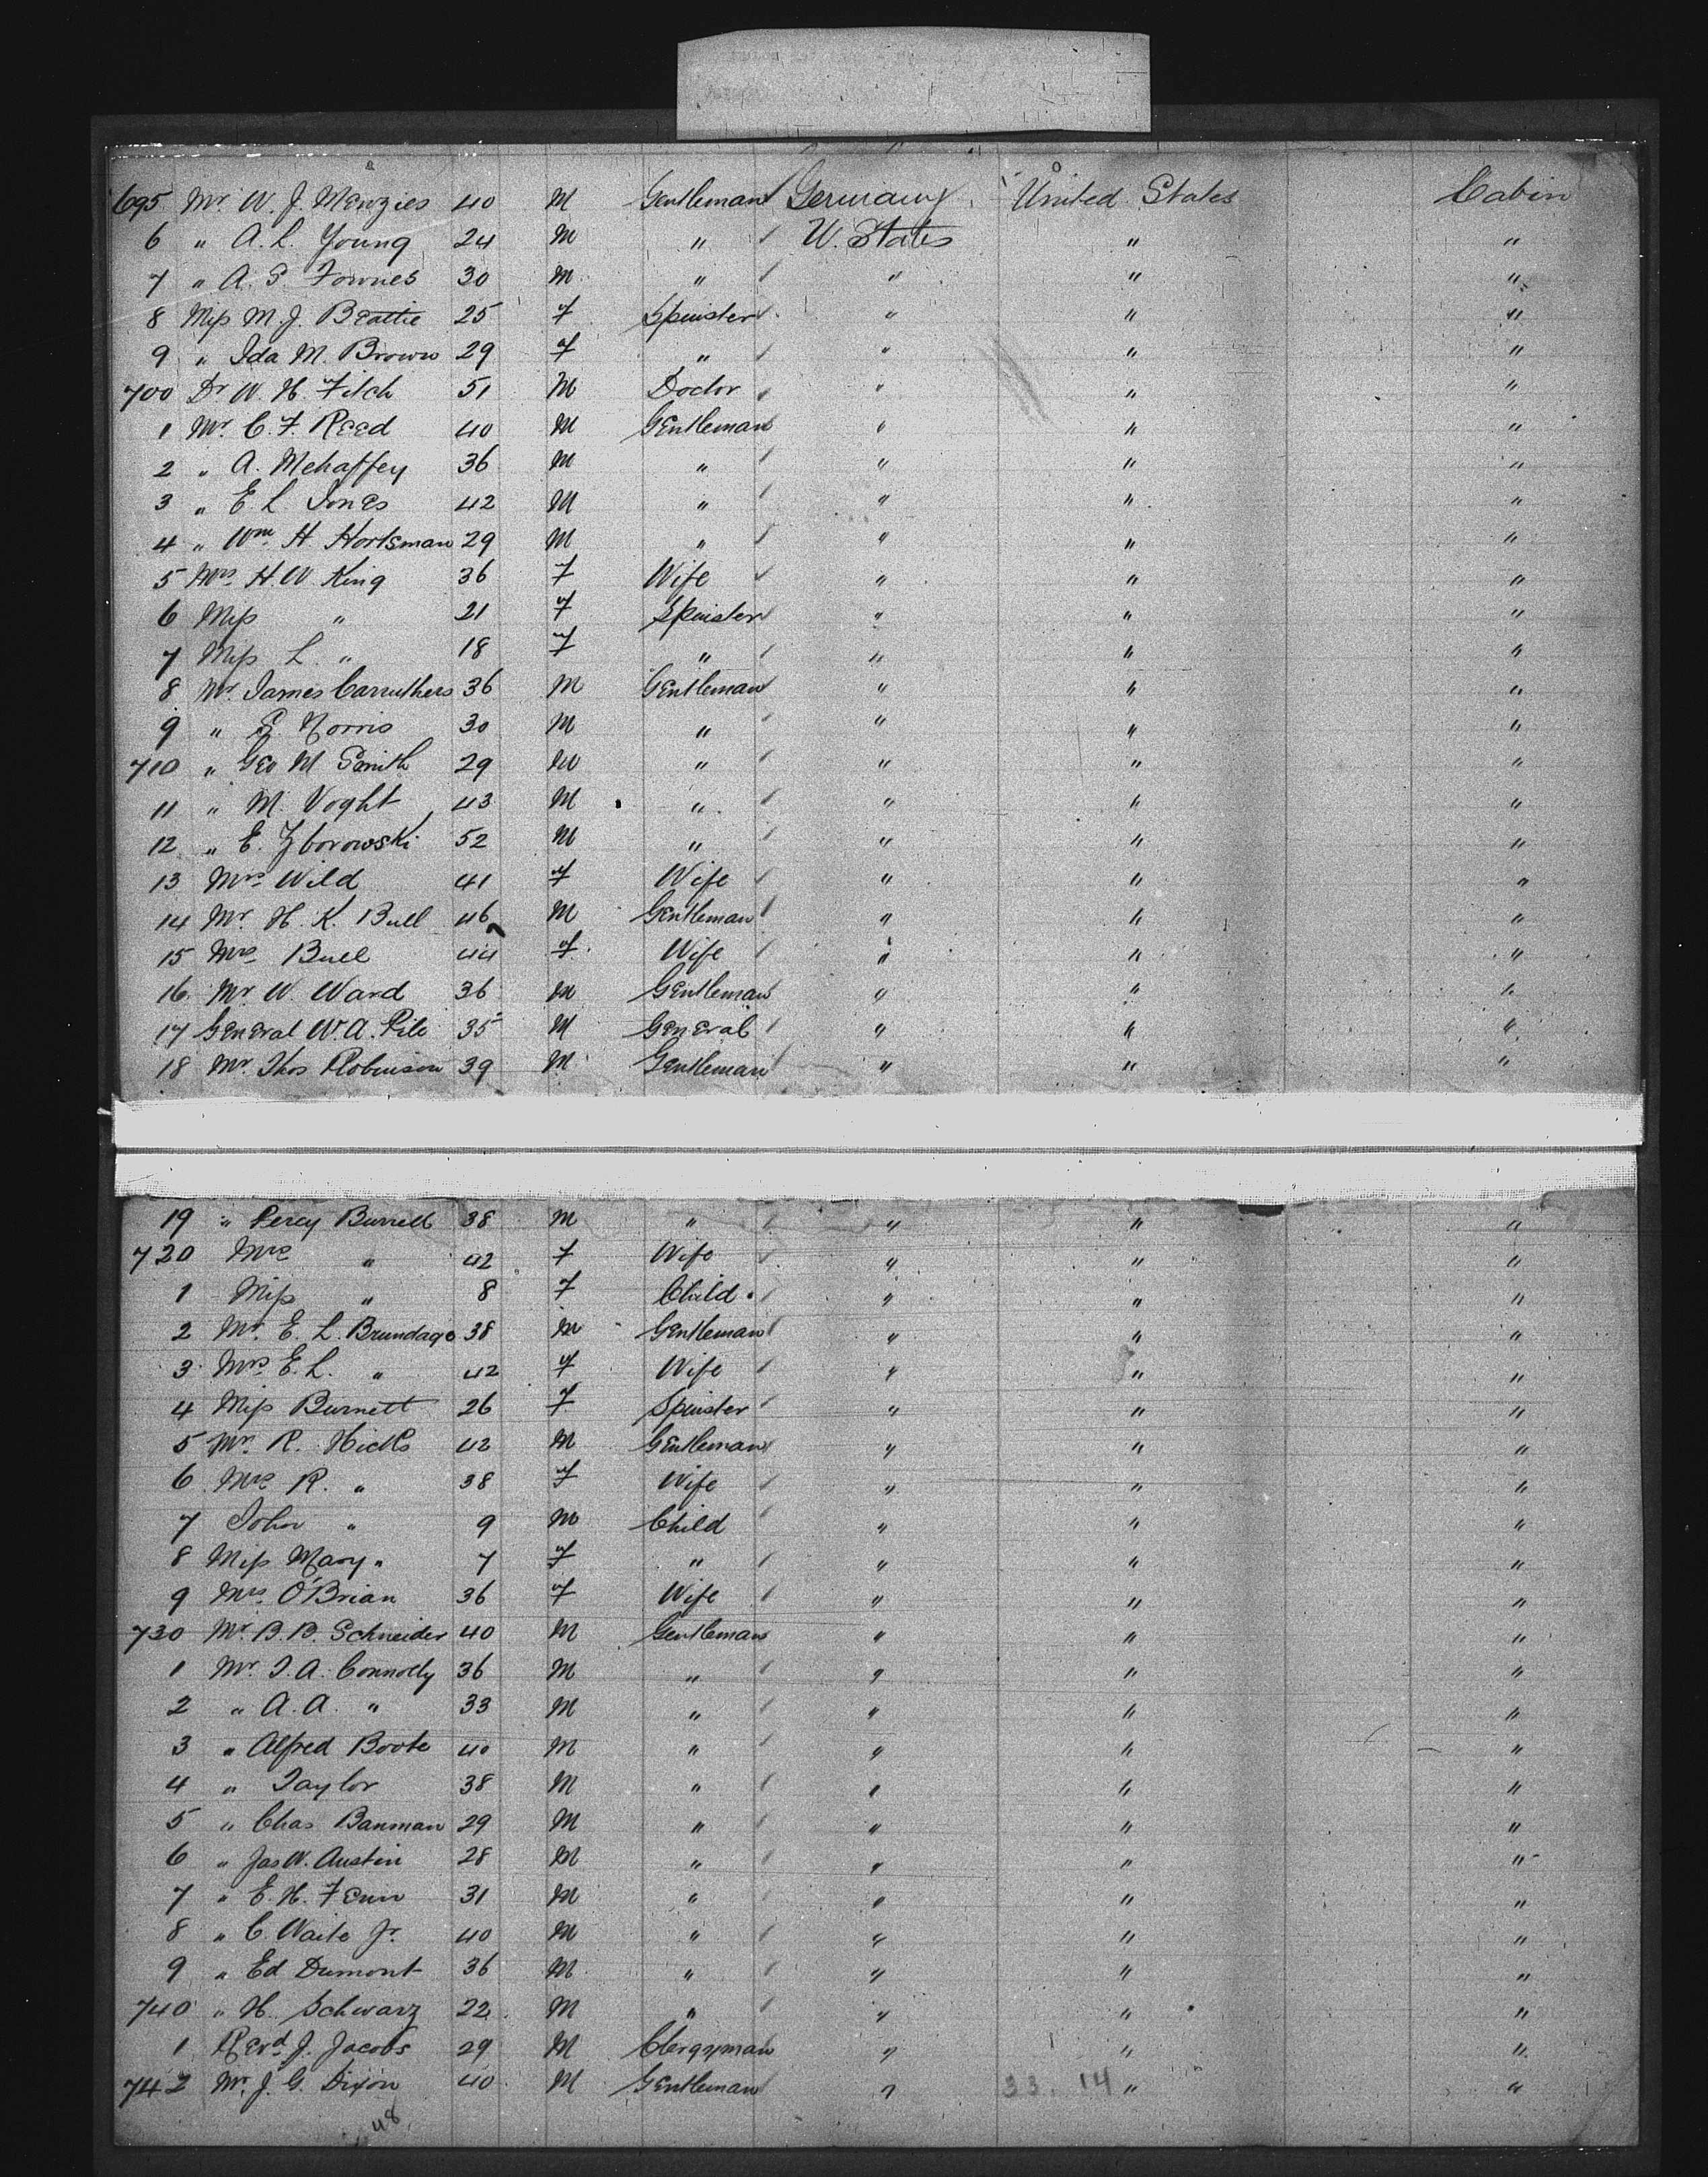 695 Mr. W. J. Menzies 40 M Gentleman Germany United States Cabin
6 " A. L. Young 24 M " U. States " "
7 " A. S. Fownes 30 M " " " "
8 Miss M. J. Beattie 25 F Spinster " " "
9 " Ida M. Brown 29 F " " " "
700 Dr W. H. Fitch 51 M Doctor " " "
1 Mr. C. F. Reed 40 M Gentleman " " "
2 " A. Mehaffey 36 M " " " "
3 " E. L. Jones 42 M " " " "
4 " Wm. H. Hortsman 29 M " " " "
5 Mrs. H. W. King 36 F Wife " " "
6 Miss " 21 F Spinster " " "
7 Miss L. " 18 F " " " "
8 Mr. James Carruthers 36 M Gentleman " " "
9 " S. Norris 30 M " " " "
710 " Geo M Smith 29 M " " " "
11 " M. Voght 43 M " " " "
12 " E. Zborowski 52 M " " " "
13 Mrs. Wild 41 F Wife " " "
14 Mr. H. K. Bull 46 M Gentleman " " "
15 Mrs. Bull 44 F Wife " " "
16 Mr. W. Ward 36 M Gentleman " " "
17 General W. A. Pile 35 M General " " "
18 Mr. Thos Robinson 39 M Gentleman " " "
19 " Percy Burrell 38 M " " " "
720 Mrs " 42 F Wife " " "
1 Miss " 8 F Child " " "
2 Mr. E. L. Brundage 38 M Gentleman " " "
3 Mrs. E. L. " 42 F Wife " " "
4 Miss Burnett 26 F Spinster " " "
5 Mr. R. Hicks 42 M Gentleman " " "
6 Mrs R. " 38 F Wife " " "
7 John " 9 M Child " " "
8 Miss Mary " 7 F " " " "
9 Mrs. O'Brian 36 F Wife " " "
730 Mr. B. B. Schneider 40 M Gentleman " " "
1 Mr. J. A. Connolly 36 M " " " "
2 " A. A. " 33 M " " " "
3 " Alfred Boote 40 M " " " "
4 " Taylor 38 M " " " "
5 " Chas Banman 29 M " " " "
6 " Jas W. Austin 28 M " " " "
7 " E. H. Fenn 31 M " " " "
8 " C. Waite Jr. 40 M " " " "
9 " Ed Dumont 36 M " " " "
740 " H. Schwarz 22 M " " " "
1 Revd. J. Jacobs 29 M Clergyman " " "
742 Mr. J. G. Dixon 40 M Gentleman " 33. 14 " "
48